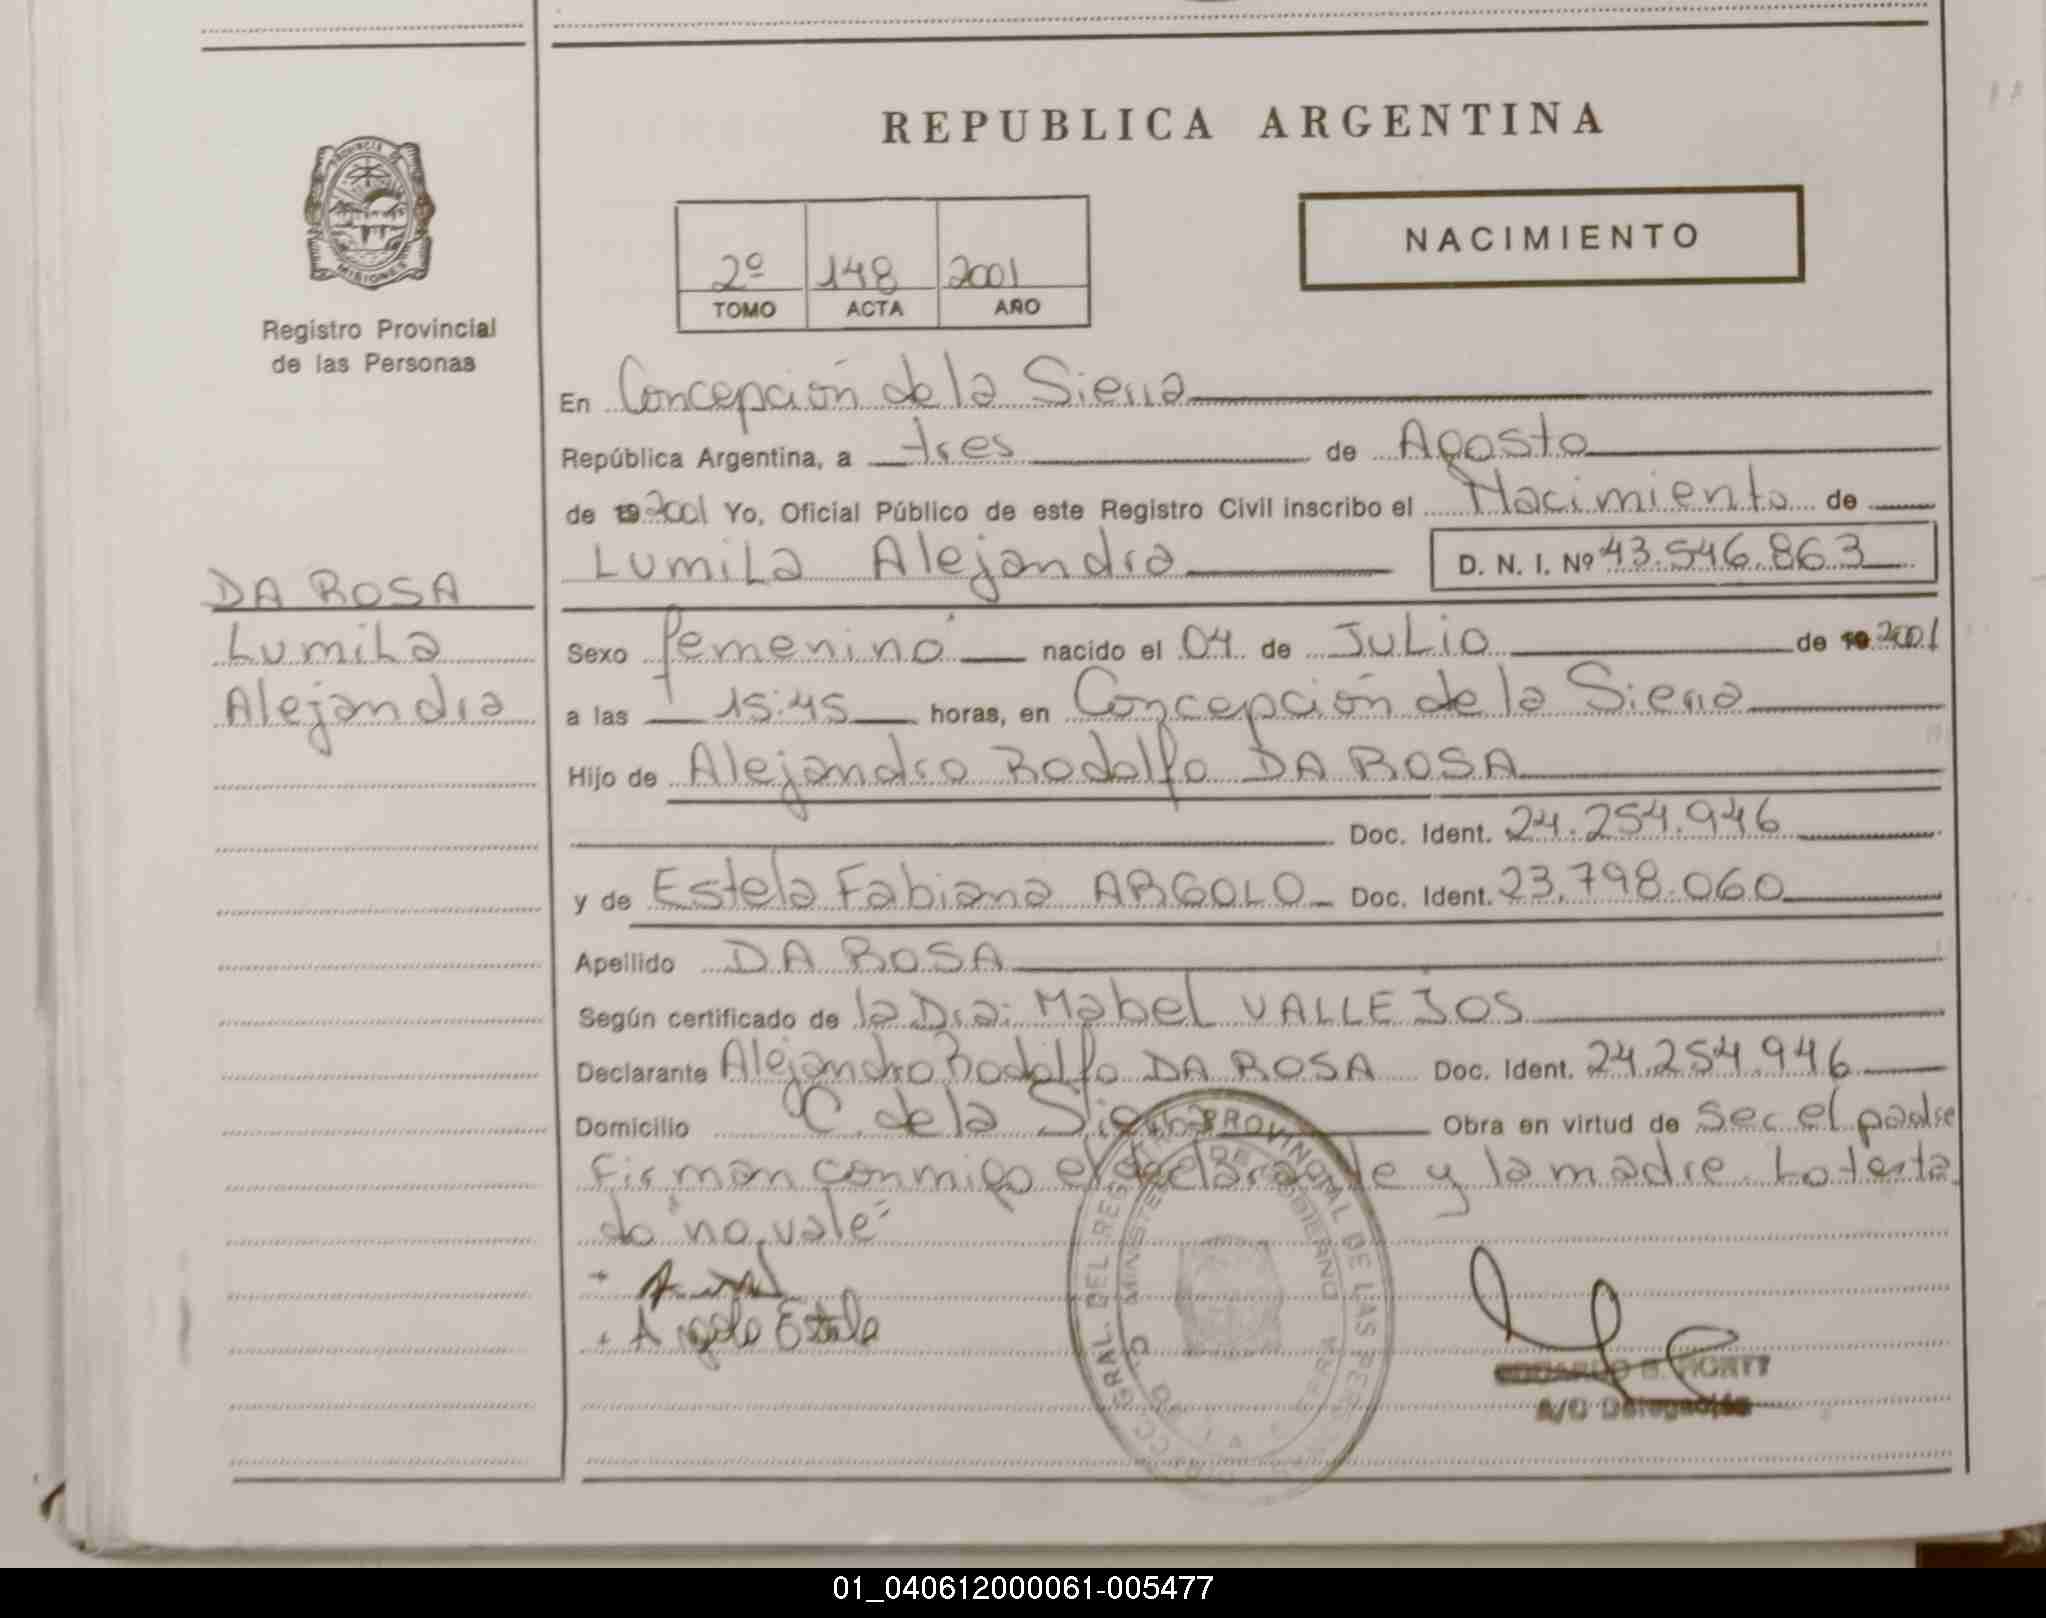 REPUBLICA ARGENTINA
PROVINCIA DE
MISIONES
Registro Provincial
de las Personas
NACIMIENTO
2º 148 2001
TOMO ACTA AÑO
En Concepción de la Sierra
República Argentina, a tres de Agosto
de 19 2001 Yo, Oficial Público de este Registro Civil inscribo el Nacimiento de
Lumila Alejandra D. N. I. Nº 43.546.863
DA ROSA
Lumila
Alejandra
Sexo femenino nacido el 04 de Julio de 19 2001
a las 15:45 horas, en Concepción de la Sierra
Hijo de Alejandro Rodolfo DA ROSA
Doc. Ident. 24.254.946
y de Estela Fabiana ARGOLO Doc. Ident. 23.798.060
Apellido DA ROSA
Según certificado de la Dra: Mabel VALLEJOS
Declarante Alejandro Rodolfo DA ROSA Doc. Ident. 24.254.946
Domicilio C. de la Sierra Obra en virtud de Ser el padre
Firman conmigo el declarante y la madre. Lo testa
do "no vale"
Argolo Estela
A/C Delegación
01_040612000061-005477